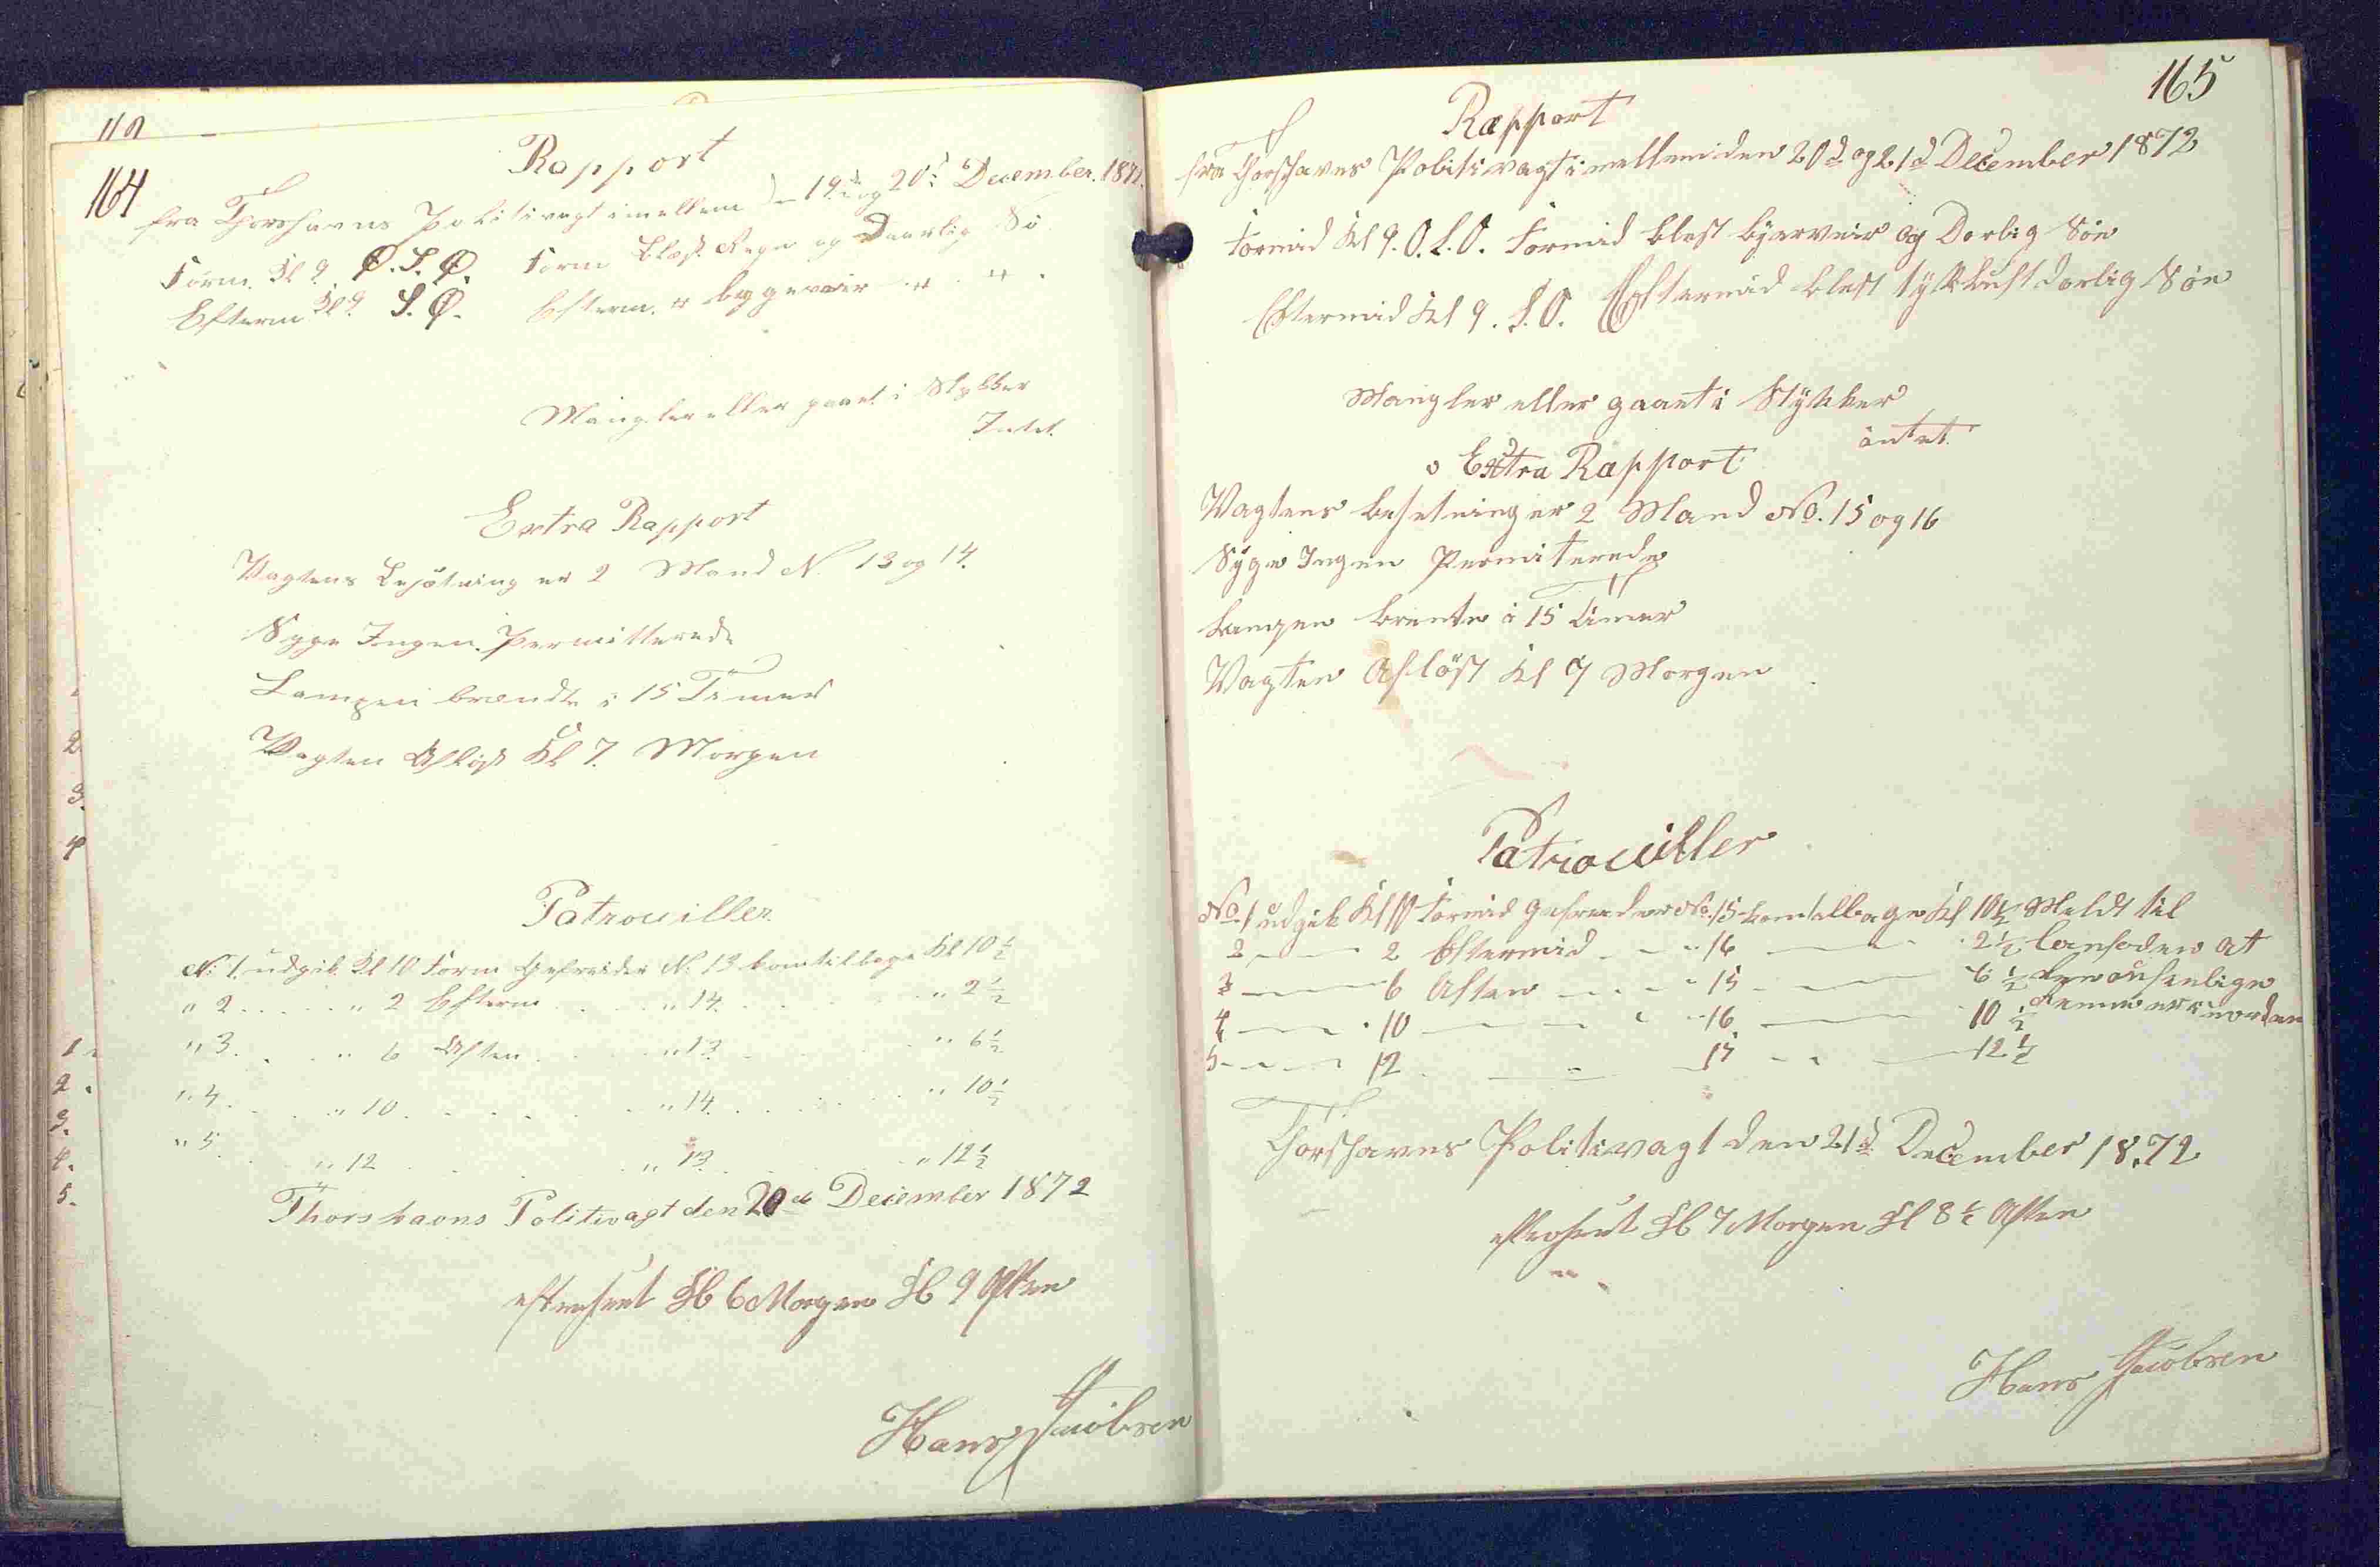 164
Rapport
fra Thorshavns Politivagt imellem D. 19de og 20de December. 1872.
Form. Kl 9. Ø.S.Ø. Form Blæst Regn og Daarlig Sö
Efterm Kl 9. S.Ø. Efterm. " bygeveir " " .
Mangler eller gaaet i Stykker
Intet.
Extra Rapport
Vagtens Besætning er 2 Mand N. 13 og 14.
Syge Ingen. Permitterede
Lampen brændte i 15 Timer
Vagten Aflöst Kl 7. Morgen
Patrouiller.
N: 1. udgik Kl 10 Form Gefreider N. 13 kom tilbage Kl 10 1/2
" 2 . . . . . " 2 Efterm . . . " 14. . . . . . . . " 2 1/2
" 3. . . . . " 6 Aften . . . . " 13 . . . . . . " 6 1/2
" 4. . . . . " 10. . . . . . . " 14. . . . . . . " 10 1/2
" 5. . . . " 12 . . . " 13. . . . . " 12 1/2
Thorshavns Politivagt den 20de December 1872
efterseet Kl 6 Morgen Kl 9 Aften
Hans Jacobsen
165
Rapport
fra Thorshavns Politivagt imellem den 20d og 21d December 1872
Formid Kl 9. O.S.O. Formid blest byarveir og Dorlig Söe
Eftermid Kl 9. S.O. Eftermid blest tykluft dorlig Söe
Mangler eller gaaet i Stykker
intet
Extra Rapport
Vagtens besetning er 2 Mand No. 15 og 16
Syge Ingen Permiterede
Lampen brente i 15 timer
Vagten Aflöst Kl 7 Morgen
Patrouiller
No. 1 udgik Kl 10 Formid Gefreider No. 15 kom tilbage Kl 10 1/2 Meldt til
2 — — 2 Eftermid - - " 16 — 2 1/2 at
3 — — 6 Aften — - - " 15 — 6 1/2
4 — — " 10 — — " 16 — 10 1/2
5 - - - 12 — 15 - - — 12 1/2
Thorshavns Politivagt den 21d December 1872
efterseet Kl 7 Morgen Kl 8 1/2 Aften
Hans Jacobsen